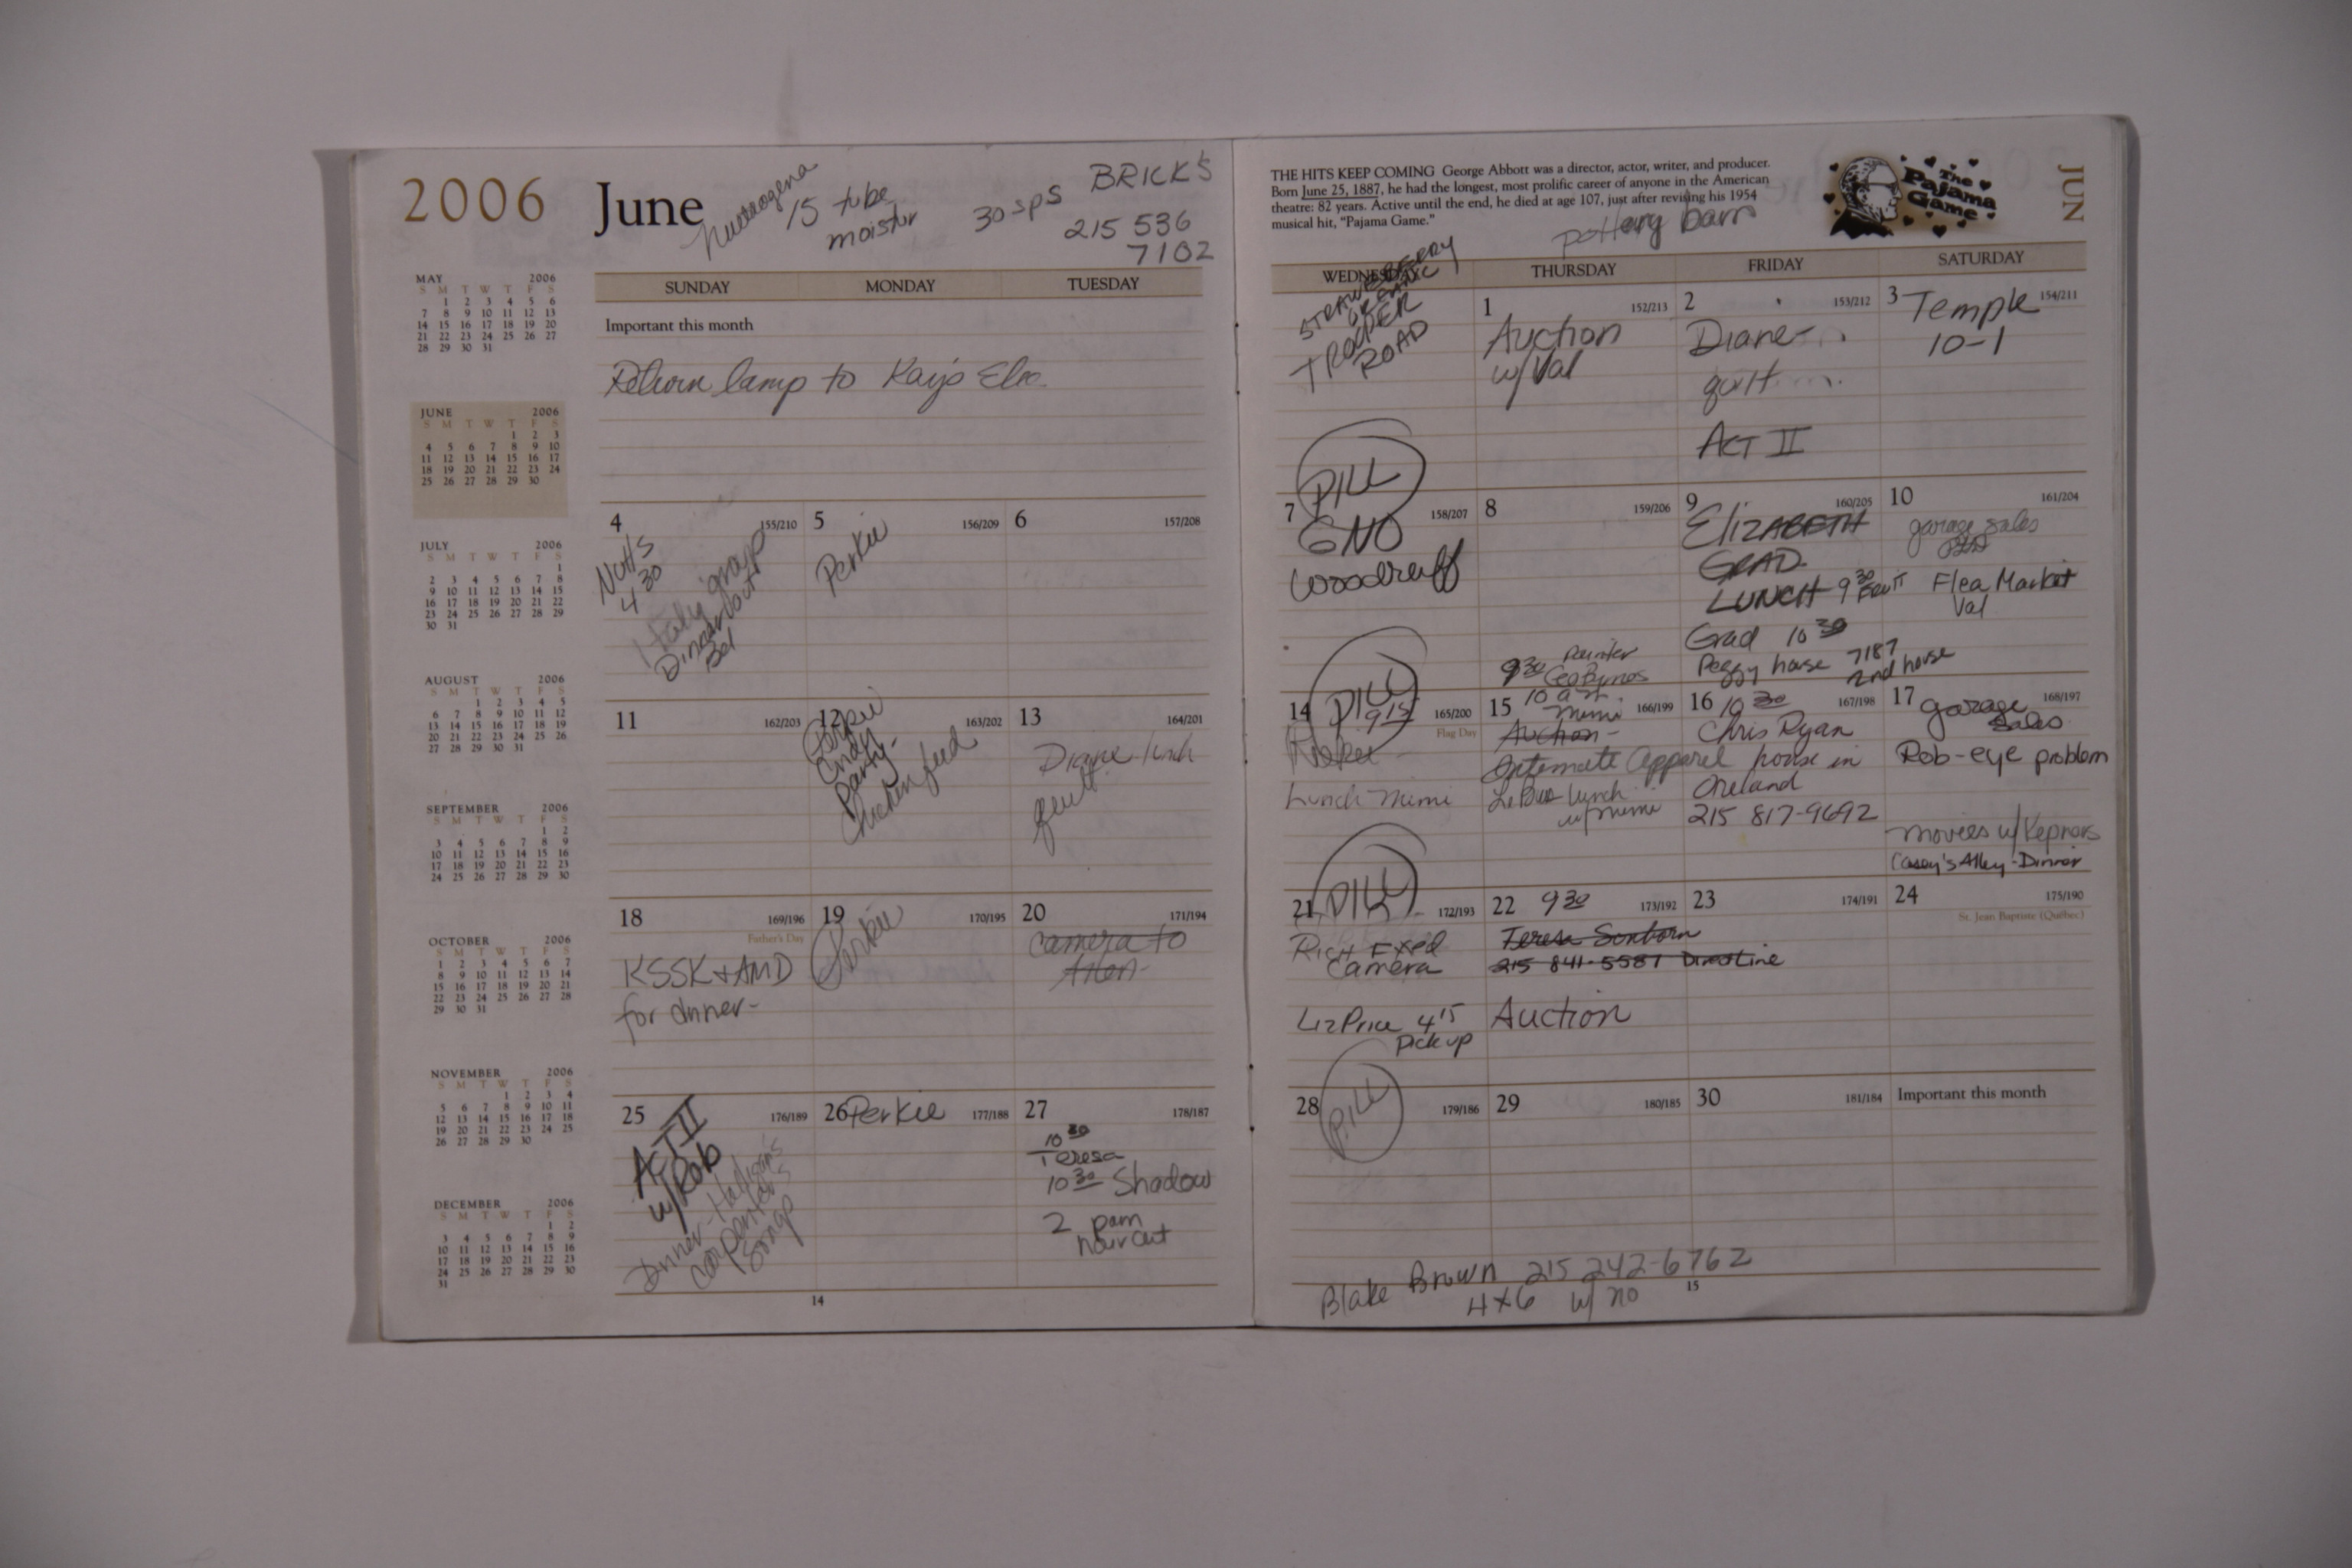 2006
June
15 tube
moistur
30 SPS
BRICK'S
215 536
7102
MAY 2006
S M T W T F S
1 2 3 4 5 6
7 8 9 10 11 12 13
14 15 16 17 18 19 20
21 22 23 24 25 26 27
28 29 30 31
JUNE 2006
S M T W T F S
1 2 3
4 5 6 7 8 9 10
11 12 13 14 15 16 17
18 19 20 21 22 23 24
25 26 27 28 29 30
JULY 2006
S M T W T F S
1
2 3 4 5 6 7 8
9 10 11 12 13 14 15
16 17 18 19 20 21 22
23 24 25 26 27 28 29
30 31
AUGUST 2006
S M T W T F S
1 2 3 4 5
6 7 8 9 10 11 12
13 14 15 16 17 18 19
20 21 22 23 24 25 26
27 28 29 30 31
SEPTEMBER 2006
S M T W T F S
1 2
3 4 5 6 7 8 9
10 11 12 13 14 15 16
17 18 19 20 21 22 23
24 25 26 27 28 29 30
OCTOBER 2006
S M T W T F S
1 2 3 4 5 6 7
8 9 10 11 12 13 14
15 16 17 18 19 20 21
22 23 24 25 26 27 28
29 30 31
NOVEMBER 2006
S M T W T F S
1 2 3 4
5 6 7 8 9 10 11
12 13 14 15 16 17 18
19 20 21 22 23 24 25
26 27 28 29 30
DECEMBER 2006
S M T W T F S
1 2
3 4 5 6 7 8 9
10 11 12 13 14 15 16
17 18 19 20 21 22 23
24 25 26 27 28 29 30
31
SUNDAY MONDAY TUESDAY
Important this month
Return lamp to Kay's Elec.
4 155/210
Nutt's
4 30
Italy group
Dinner out
5 156/209
Perkie
6 157/208
11 162/203
12 163/202
Perkie
Cindy
party-
Chicken feed
13 164/201
Diane lunch
quilt
18 169/196
Father's Day
KSSK + AMD
for dinner-
19 170/195
Perkie
20 171/194
camera to
25 176/189
ACT II
w/Rob
Dinner-
Carpenter's
Songs
26 Perkie 177/188
27 178/187
10 30
Teresa
10 30 Shadow
2 pam
haircut
14
THE HITS KEEP COMING George Abbott was a director, actor, writer, and producer.
Born June 25, 1887, he had the longest, most prolific career of anyone in the American
theatre: 82 years. Active until the end, he died at age 107, just after revising his 1954
musical hit, "Pajama Game."
pottery barn
The
Pajama
Game
JUN
WEDNESDAY THURSDAY FRIDAY SATURDAY
STRAWBERRY
ORGANIC
TROOPER
ROAD
PILL
1 152/213
Auction
w/Val
2 153/212
Diane
quilt
ACT II
3 154/211
Temple
10-1
7 158/207
GNO
Woodruff
PILL
8 159/206
9 30 Painter
9 160/205
ElizABETH
GRAD.
LUNCH 9 30 FRUIT
Grad 10 30
Peggy house 7187
2nd house
10 161/204
garage sales
Flea Market
Val
14 9 15 165/200
Flag Day
Lunch Mimi
PILL
15 166/199
10 am
Mimi
Auction-
Intimate Apparel
LeBus lunch
w/mimi
16 10 30 167/198
Chris Ryan
house in
Ireland
215 817-9692
17 168/197
garage
sales
Rob-eye problem
movies w/Kepners
Casey's Alley-Dinner
21 172/193
Rich Fixed
Camera
Liz Price 4 15
Pick up
22 9 30 173/192
Teresa Sunborn
215 841-5587 DirectLine
Auction
23 174/191
24 175/190
St. Jean Baptiste (Québec)
28 179/186
PILL
29 180/185
30 181/184
Important this month
Blake Brown 215 242-6762
4x6 w/ no
15